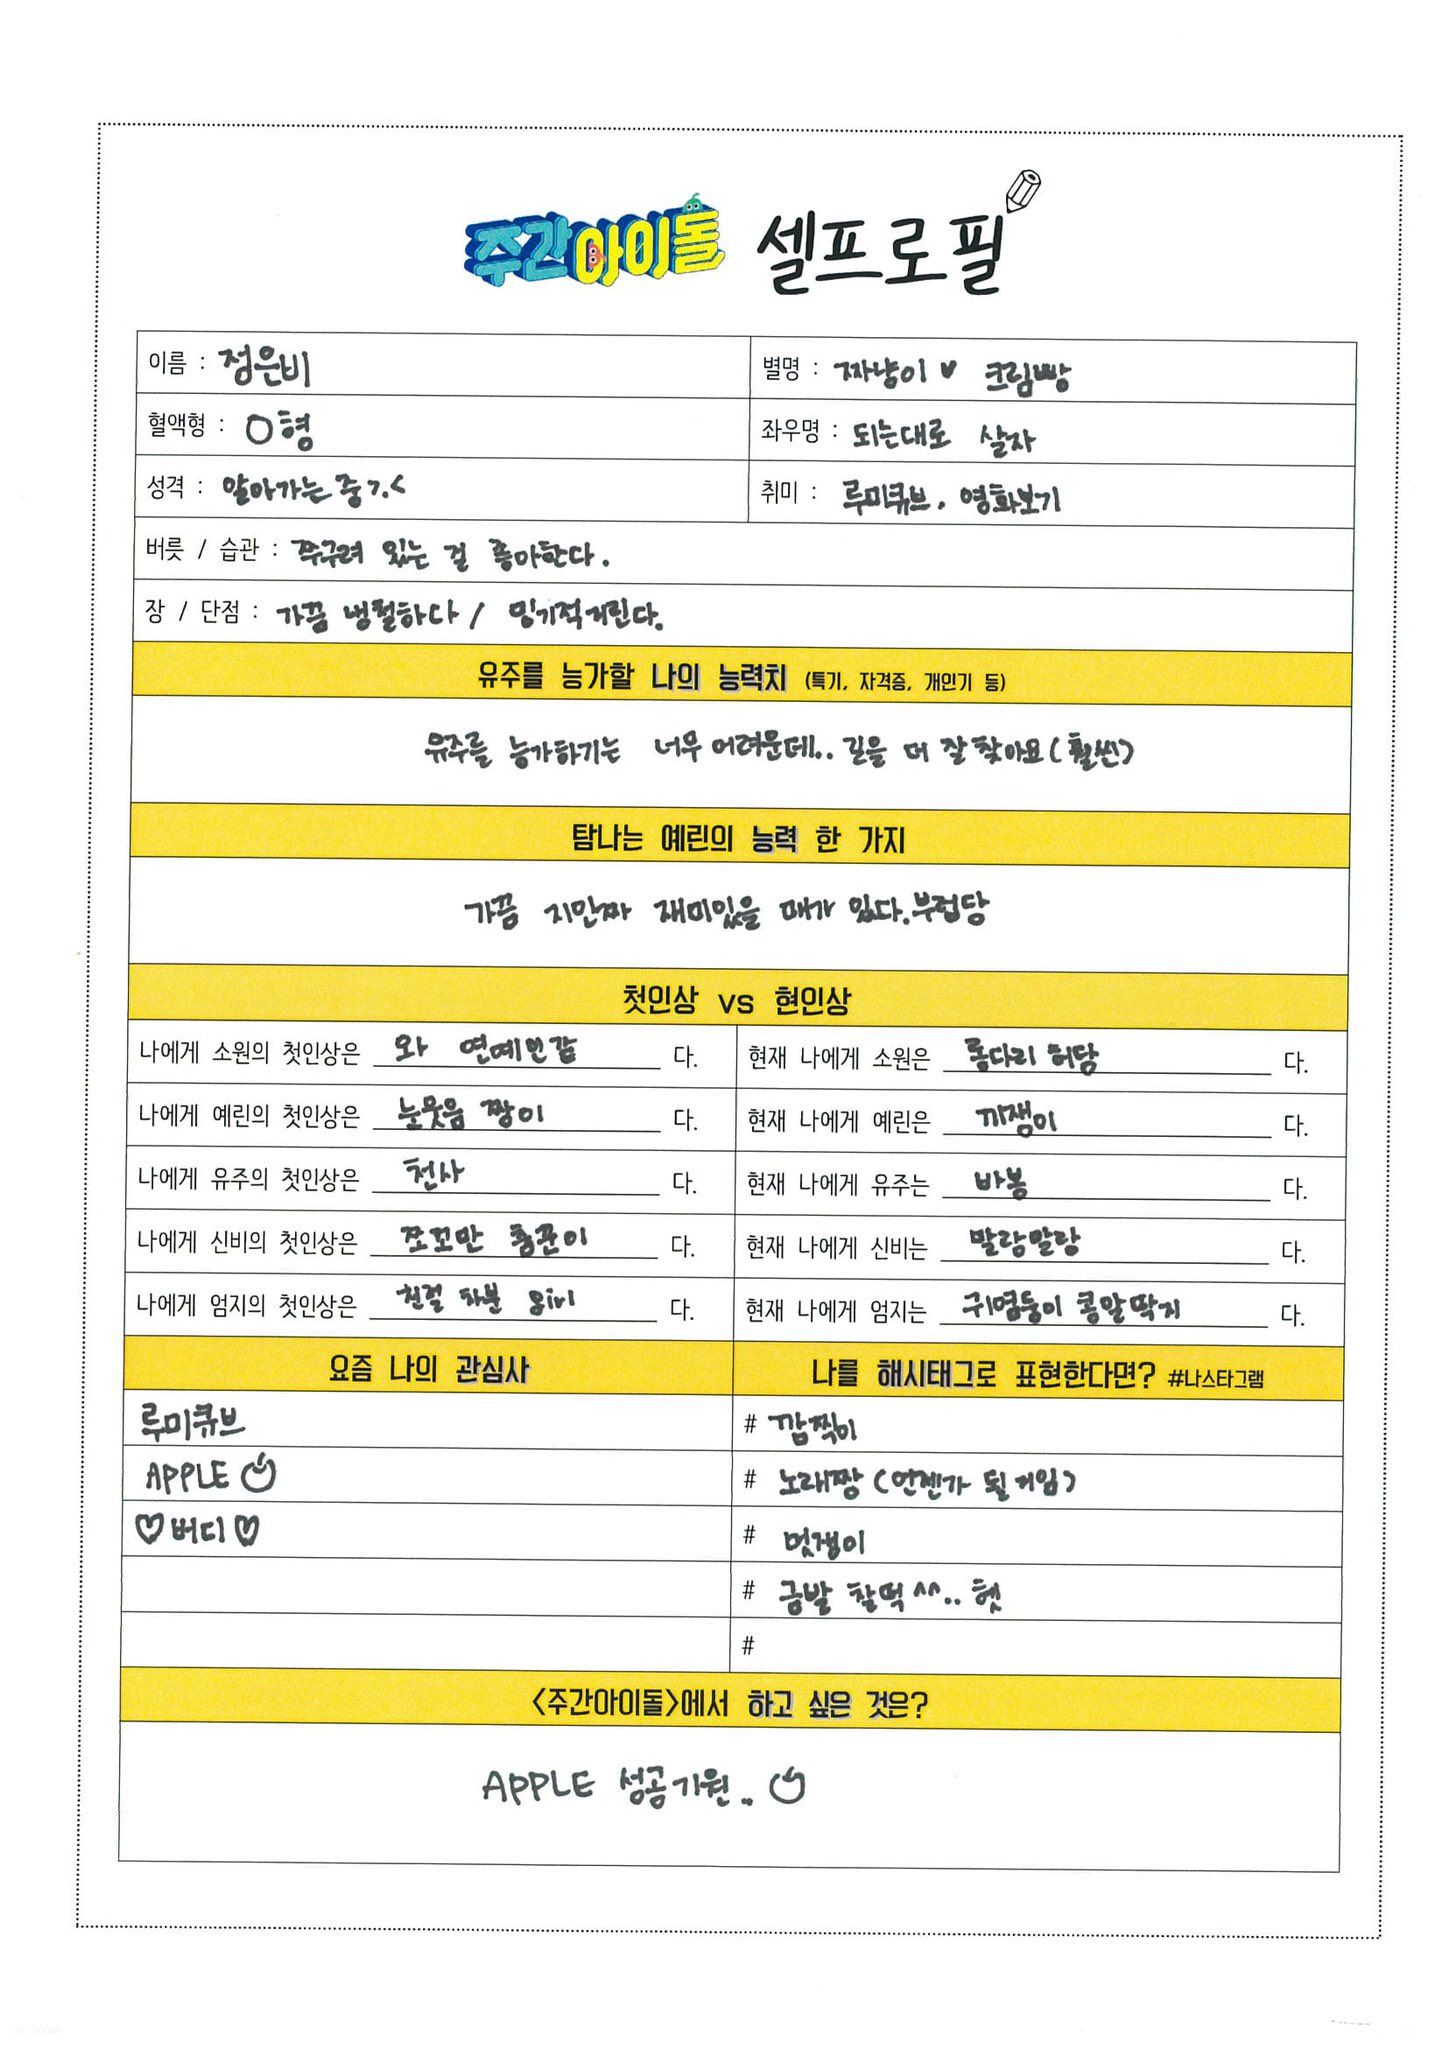 주간아이돌 셀프로필
이름 : 정은비
별명 : 짜냥이 ♥ 크림빵
혈액형 : O형
좌우명 : 되는대로 살자
성격 : 알아가는 중 >.<
취미 : 루미큐브, 영화보기
버릇 / 습관 : 쭈구려 있는 걸 좋아한다.
장 / 단점 : 가끔 냉철하다 / 밍기적거린다.
유주를 능가할 나의 능력치 (특기, 자격증, 개인기 등)
유주를 능가하기는 너무 어려운데.. 길을 더 잘 찾아요 (훨씬)
탐나는 예린의 능력 한 가지
가끔 지만짜 재미있을 때가 있다. 부럽당
첫인상 vs 현인상
나에게 소원의 첫인상은 와 연예인같 다.
현재 나에게 소원은 롱다리 허당 다.
나에게 예린의 첫인상은 눈웃음 짱이 다.
현재 나에게 예린은 끼쟁이 다.
나에게 유주의 첫인상은 천사 다.
현재 나에게 유주는 바봉 다.
나에게 신비의 첫인상은 쪼꼬만 춤꾼이 다.
현재 나에게 신비는 말랑말랑 다.
나에게 엄지의 첫인상은 친절 차분 girl 다.
현재 나에게 엄지는 귀염둥이 콩알딱지 다.
요즘 나의 관심사
나를 해시태그로 표현한다면? #나스타그램
루미큐브
# 깜찍이
APPLE
# 노래짱 (언젠가 될거임)
♡버디♡
# 멋쟁이
# 금발 찰떡 ^^.. 헷
#
<주간아이돌>에서 하고 싶은 것은?
APPLE 성공기원..